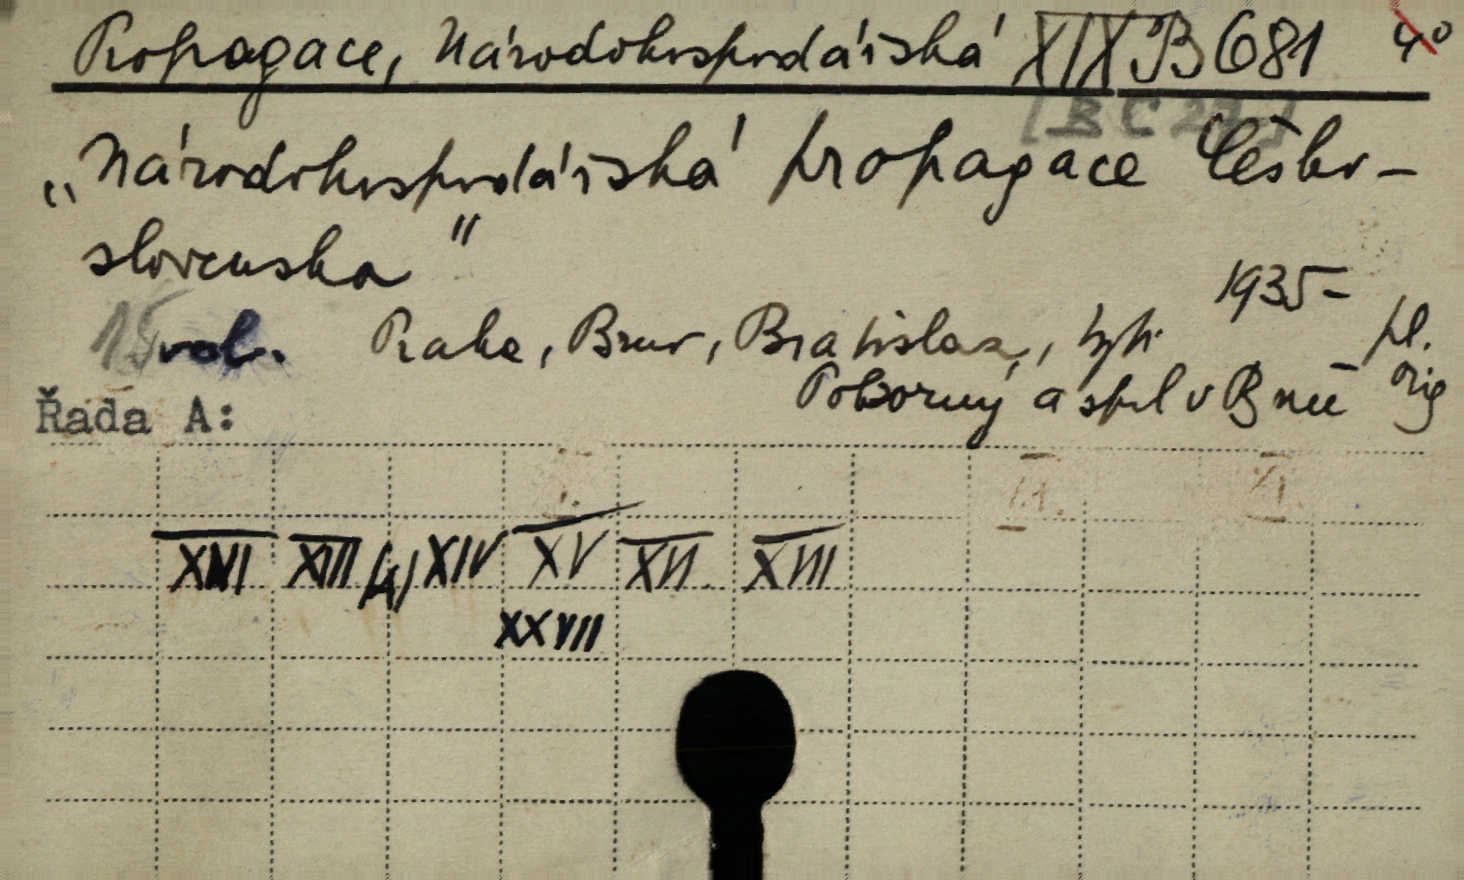 Propagace, Národohospodářská XIX B 681 4°
[BC 27.]
„Národohospodářská propagace Česko-
slovenska"
1935-
15 vol. Praha, Brno, Bratislava, typ. pl.
Pokorný a spol v Brně orig
Řada A:
XIII XIV XV XVI XVIII
XXVII